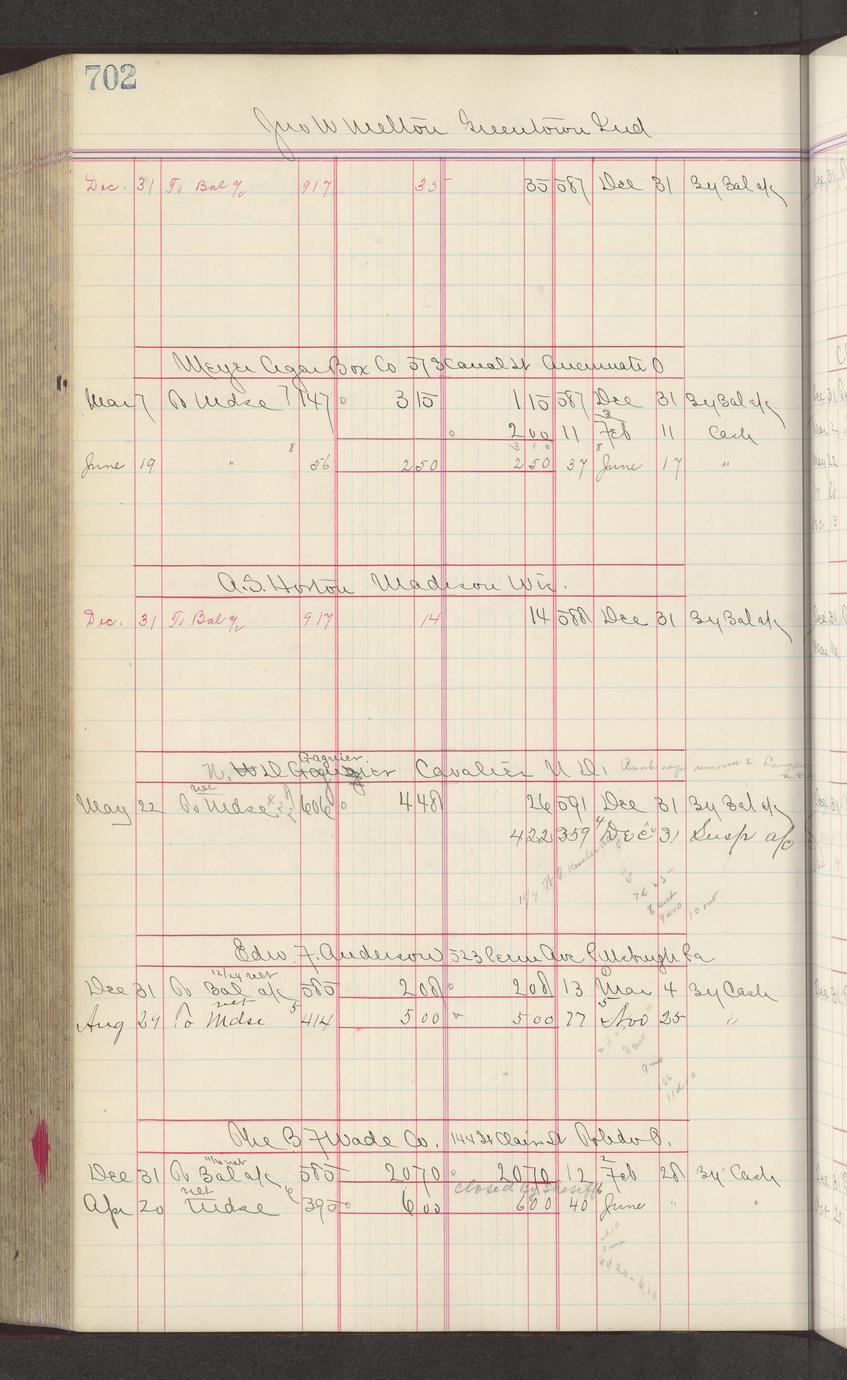 702
Jno W Melton Greentown Ind
Dec. 31 To Bal a/c 917 35 35 587 Dec 31 By Bal a/c
Meyer Cigar Box Co 573 Canal St Cincinnati O
Mar 7 To Mdse 7 147 315 115 587 Dec 31 By Bal a/c
200 11 Feb 11 Cash
June 19 " 8 56 250 250 37 June 17 "
A.S. Horton Madison Wis.
Dec. 31 To Bal a/c 917 14 14 588 Dec 31 By Bal a/c
Gagnier
Cavalier N D,
net
May 22 To Mdse 606 448 26 591 Dec 31 By Bal a/c
422 359 Dec 31 Susp a/c
Edw. F. Anderson 523 Penn Ave Pittsburgh Pa
12/24 net
Dec 31 To Bal a/c 585 208 208 13 Mar 4 By Cash
net
Aug 29 To Mdse 5 414 500 500 77 Nov 25 "
The B F Wade Co. 144 St Clair St Toledo O.
net
Dec 31 To Bal a/c 585 2070 2070 12 Feb 28 By Cash
closed by sheriff
net
Apr 20 Mdse 395 600 600 40 June " "